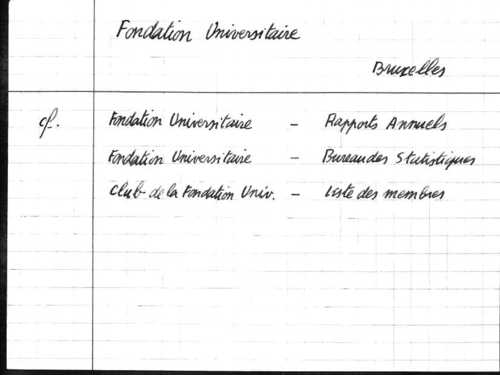 Fondation Universitaire
Bruxelles
cf. Fondation Universitaire – Rapports Annuels
Fondation Universitaire – Bureau des Statistiques
Club de la Fondation Univ. – Liste des membres